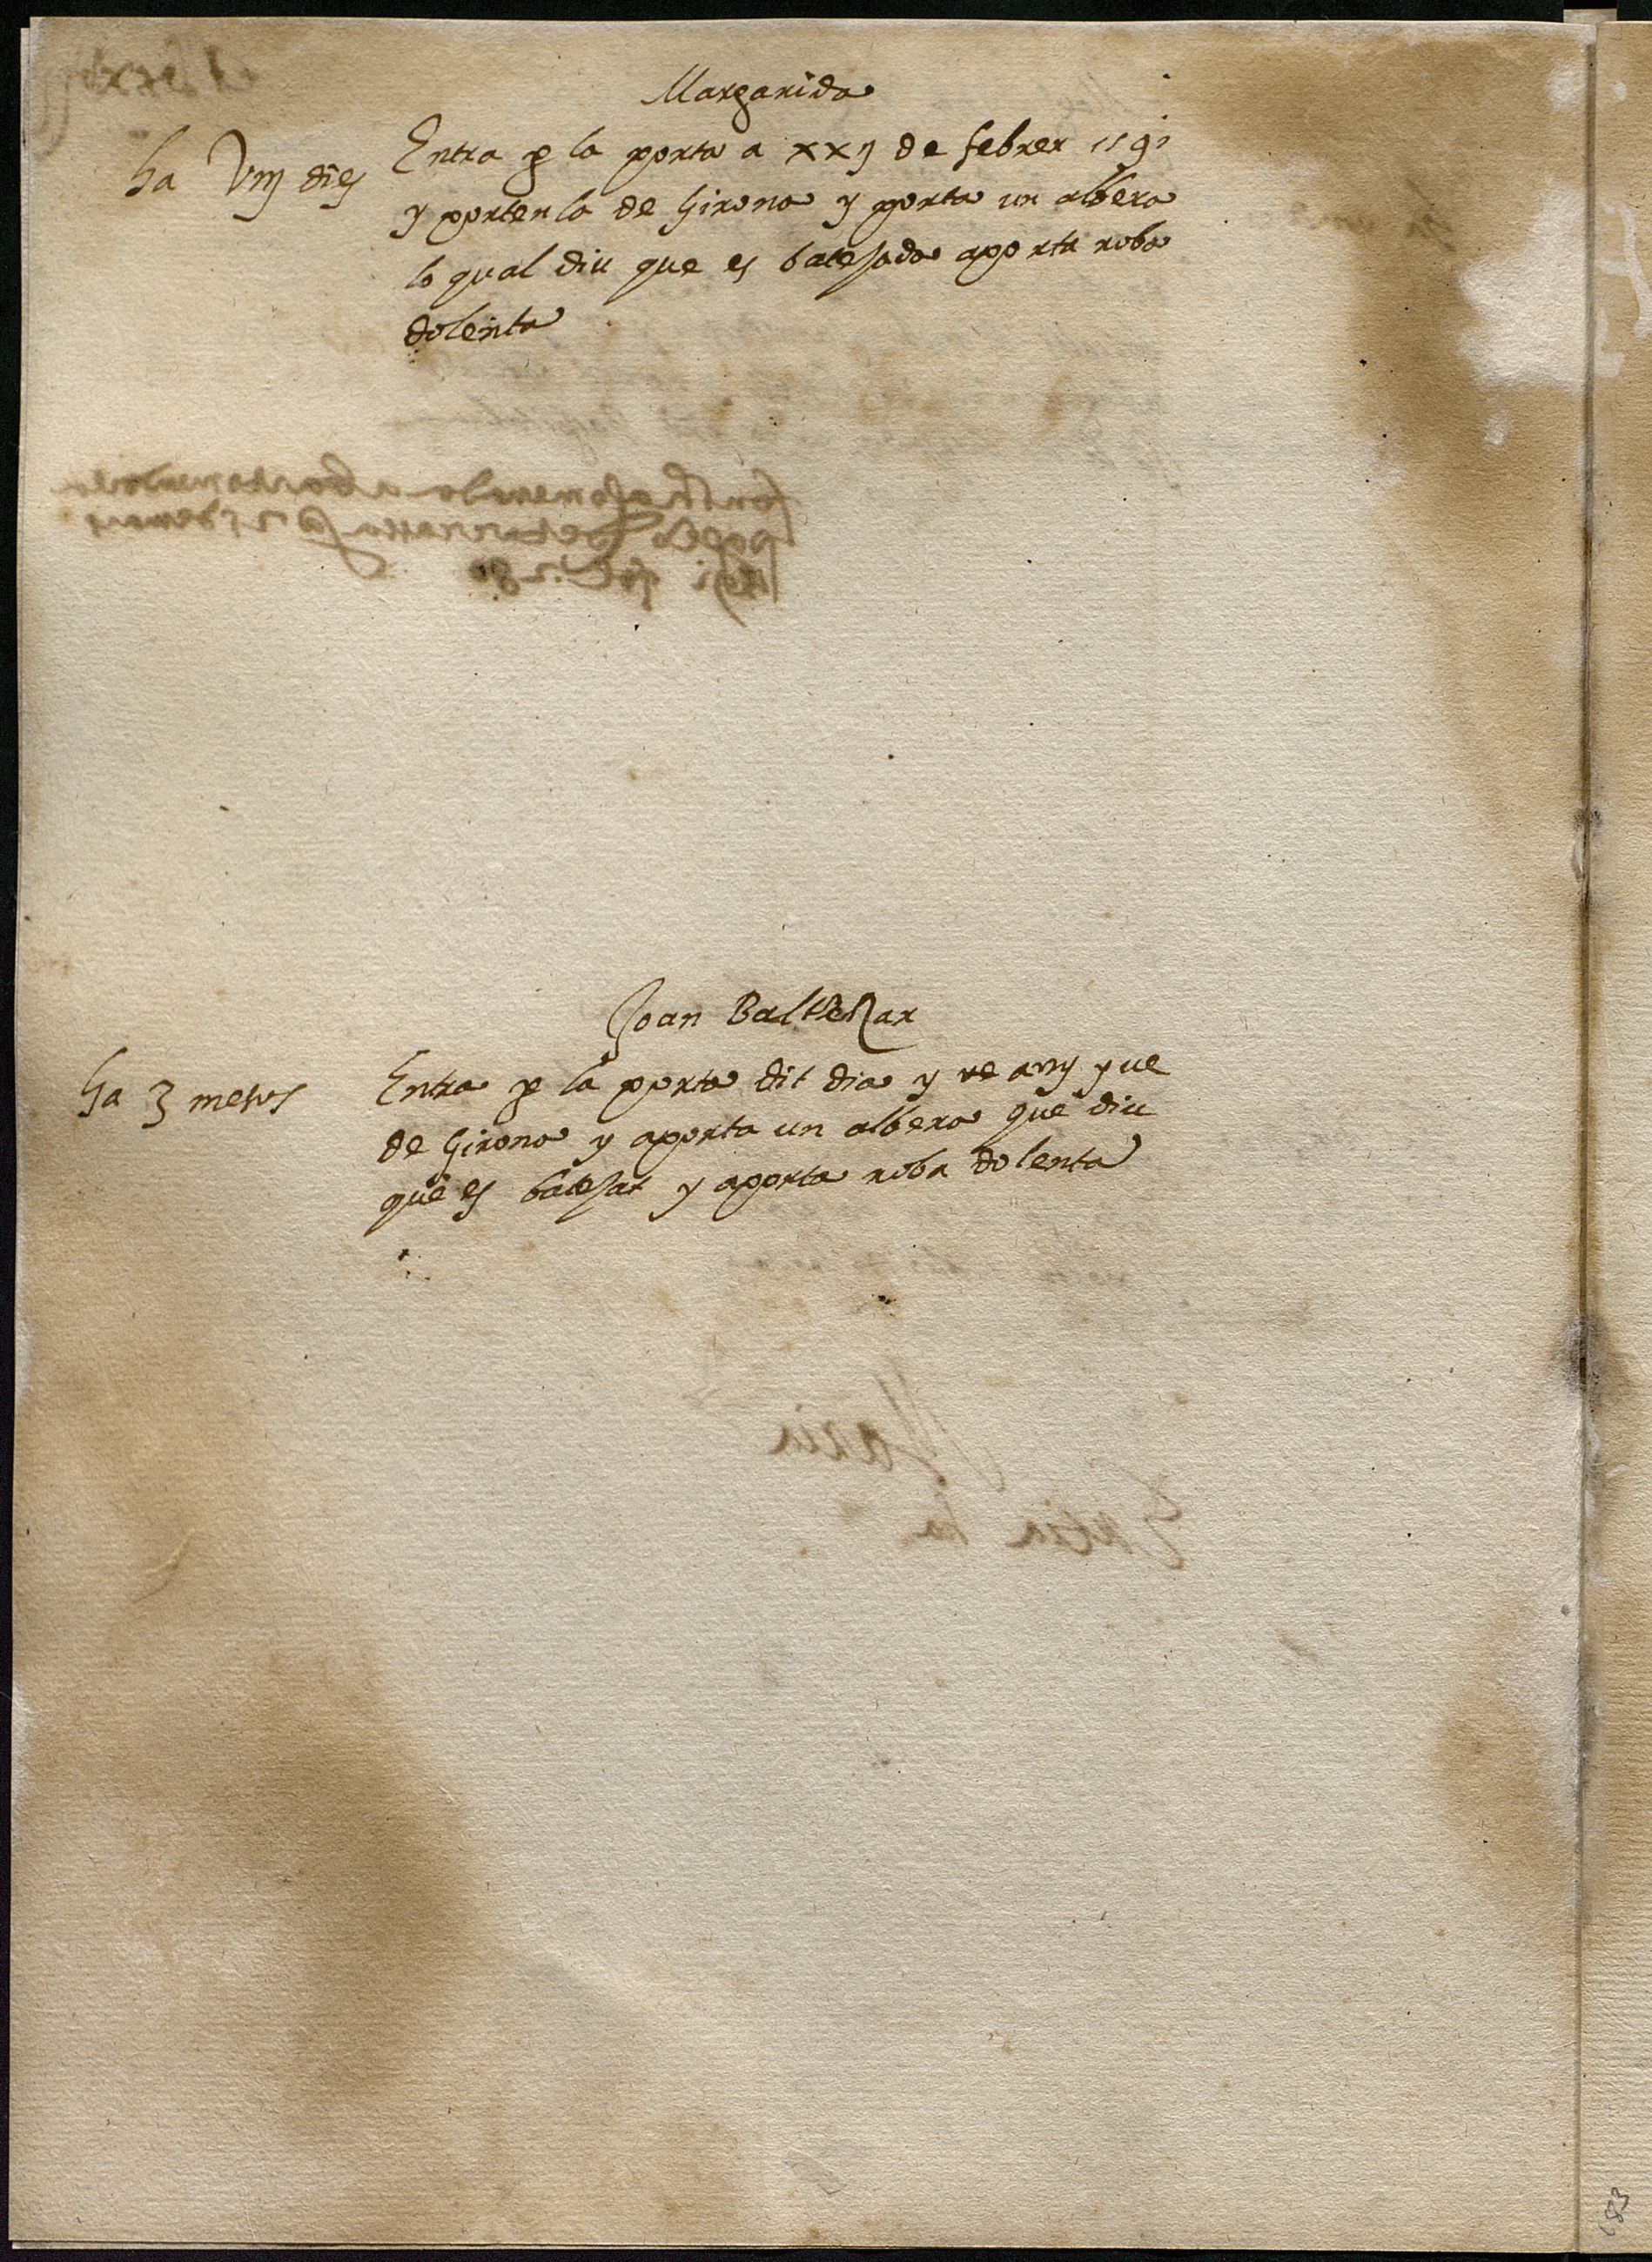 Margarida
ha Viiij dies
Entra p la porta a xxij de febrer 1591
y portenla de Girona y porta un albera
lo qual diu que es batejada aporta roba
dolenta
Joan Balthezar
ha 3 mesos
Entra p la porta dit dia y
de Girona y aporta un albera que diu
que es batejat y aporta roba dolenta